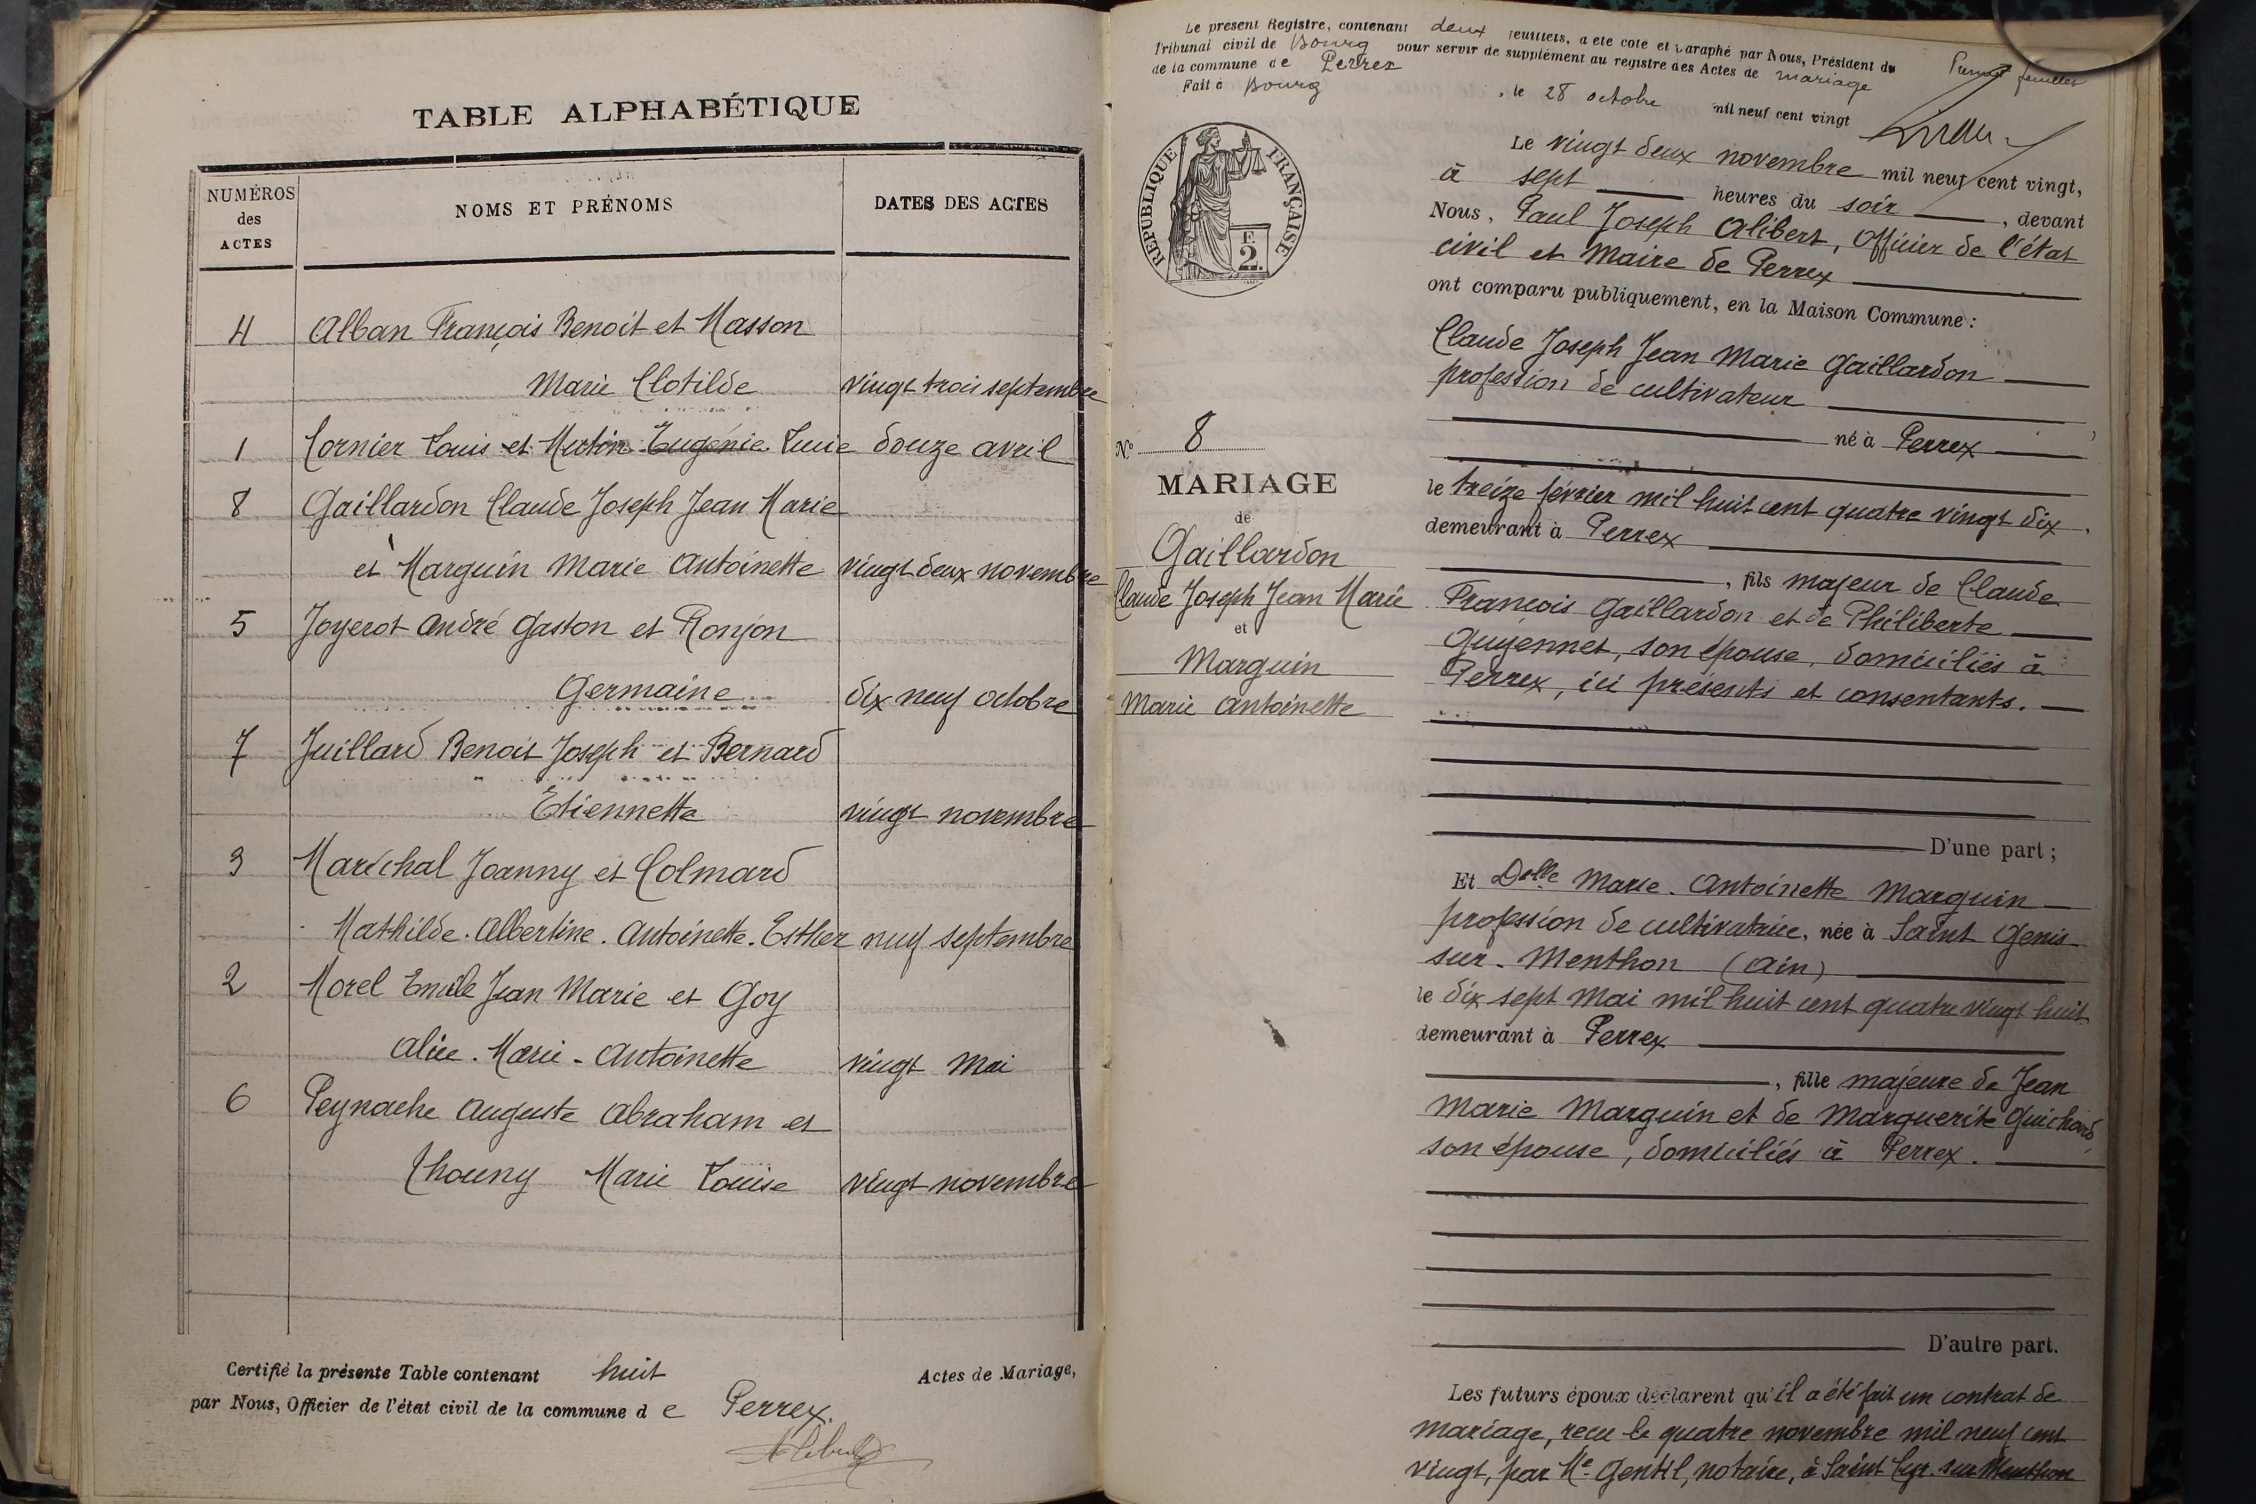 TABLE ALPHABÉTIQUE
NUMÉROS
des
ACTES
NOMS ET PRÉNOMS
DATES DES ACTES
4 Alban François Benoit et Masson
Marie Clotilde vingt trois septembre
1 Cornier Louis et Mutin Eugénie Lucie douze avril
8 Gaillardon Claude Joseph Jean Marie
et Marguin Marie Antoinette vingt deux novembre
5 Joyerot André Gaston et Ronjon
Germaine dix neuf octobre
7 Juillard Benoit Joseph et Bernard
Etiennette vingt novembre
3 Maréchal Joanny et Colmard
Mathilde. Albertine. Antoinette. Esther neuf septembre
2 Morel Emile Jean Marie et Goy
Alice. Marie - Antoinette vingt mai
6 Peynache Auguste Abraham et
Thouny Marie Louise vingt novembre
Certifié la présente Table contenant huit Actes de Mariage,
par Nous, Officier de l'état civil de la commune de Perrex.
Alibert
Le présent Registre, contenant deux feuillets, a été coté et paraphé par Nous, Président du
Tribunal civil de Bourg pour servir de supplément au registre des Actes de mariage
de la commune de Perrex
Fait à Bourg, le 28 octobre mil neuf cent vingt
Premier feuillet
RÉPUBLIQUE FRANÇAISE
F.
2.
Le vingt deux novembre mil neuf cent vingt,
à sept heures du soir, devant
Nous, Paul Joseph Alibert, Officier de l'état
civil et Maire de Perrex
ont comparu publiquement, en la Maison Commune :
Claude Joseph Jean Marie Gaillardon
profession de cultivateur
né à Perrex
le treize février mil huit cent quatre vingt dix,
demeurant à Perrex
, fils majeur de Claude
François Gaillardon et de Philiberte
Guyennet, son épouse, domiciliés à
Perrex, ici présents et consentants.
D'une part ;
N° 8
MARIAGE
de
Gaillardon
Claude Joseph Jean Marie
et
Marguin
Marie Antoinette
Et Delle Marie. Antoinette Marguin
profession de cultivatrice, née à Saint Genis
sur. Menthon (Ain)
le dix sept mai mil huit cent quatre vingt huit
demeurant à Perrex
, fille majeure de Jean
Marie Marguin et de Marguerite Guichard
son épouse, domiciliés à Perrex.
D'autre part.
Les futurs époux déclarent qu'il a été fait un contrat de
mariage, recu le quatre novembre mil neuf cent
vingt, par Me Gentil, notaire, à Saint Cyr. sur Menthon